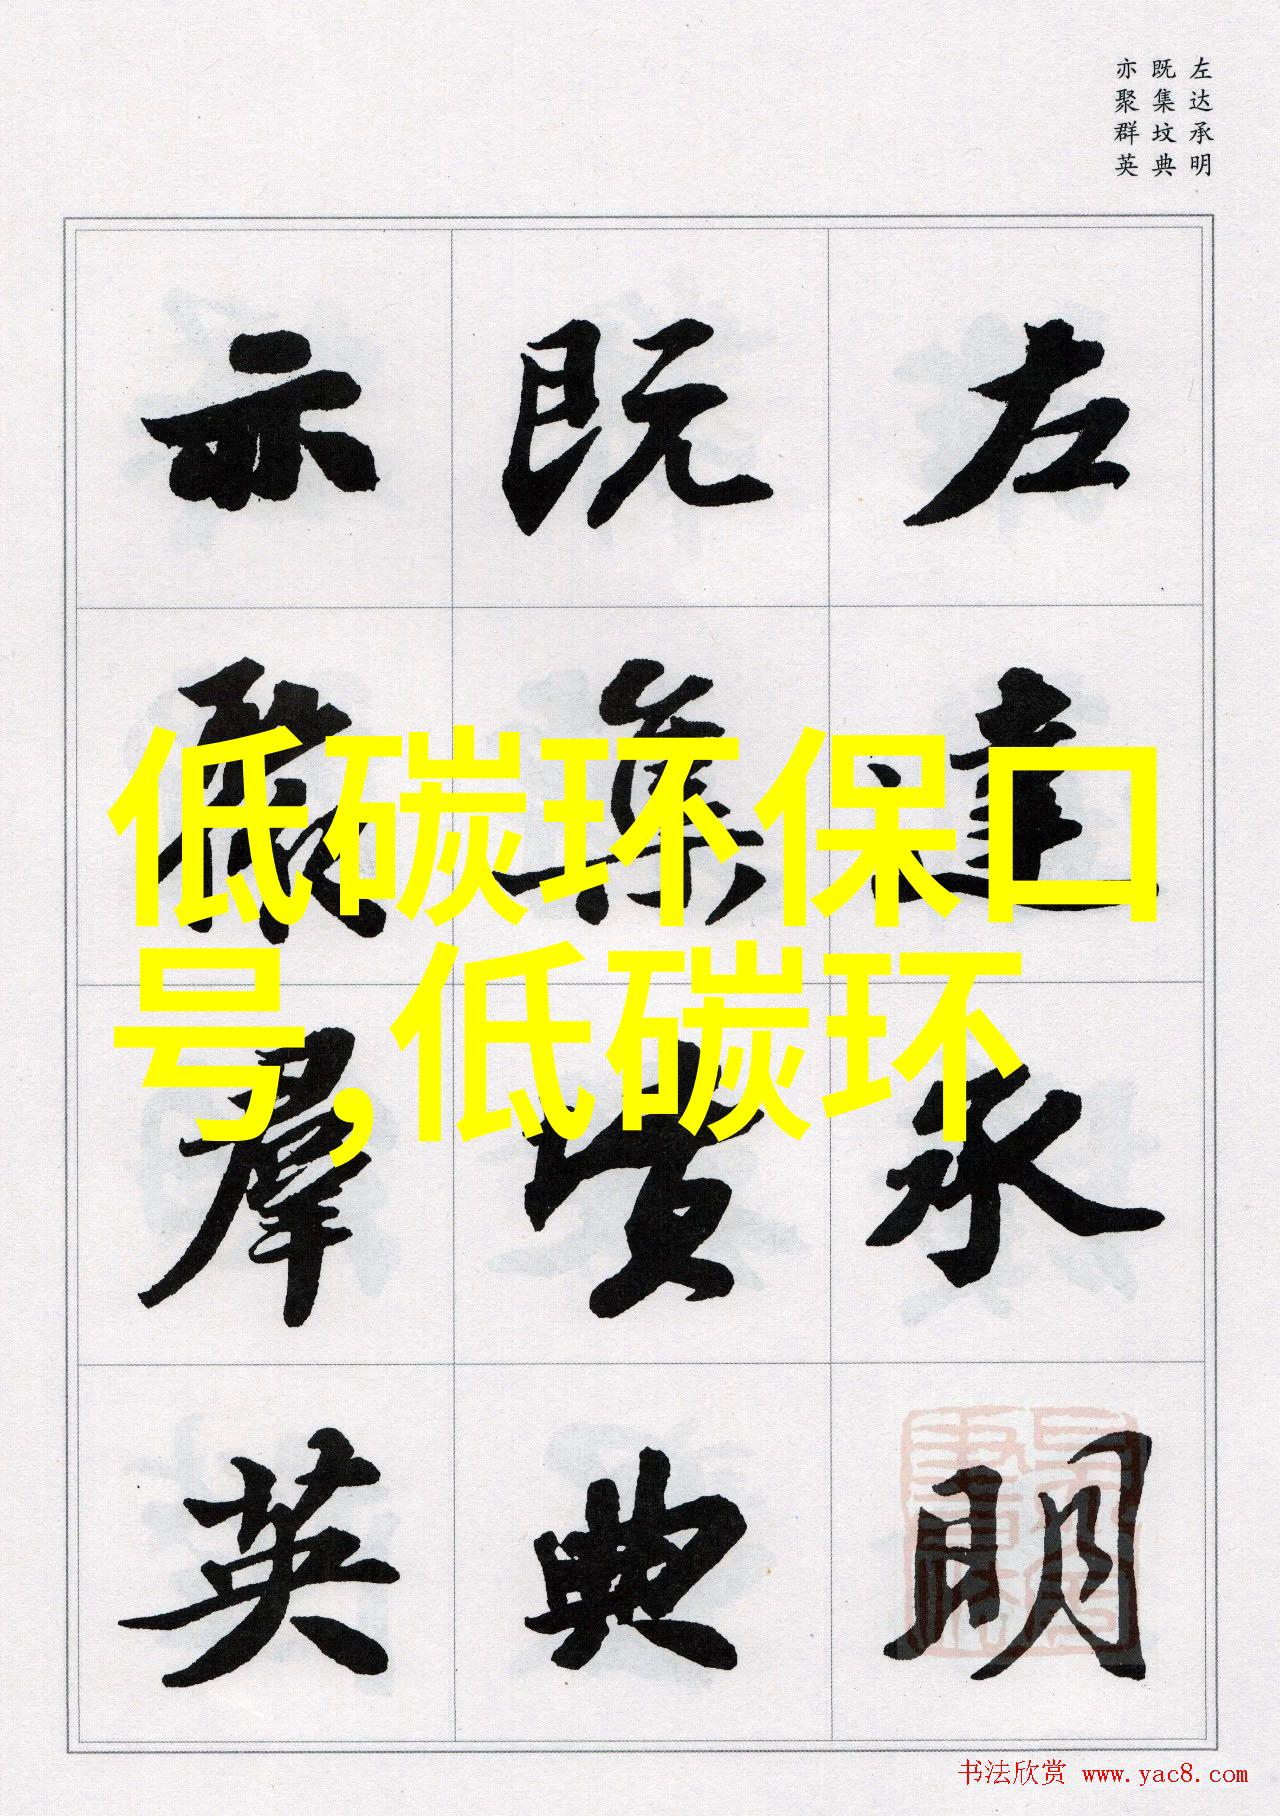 左达承明
既集坟典
亦聚群英
左達承明
既集墳典
亦聚羣英
低碳环保口
号,低碳环
书法欣赏 www.yac8.com